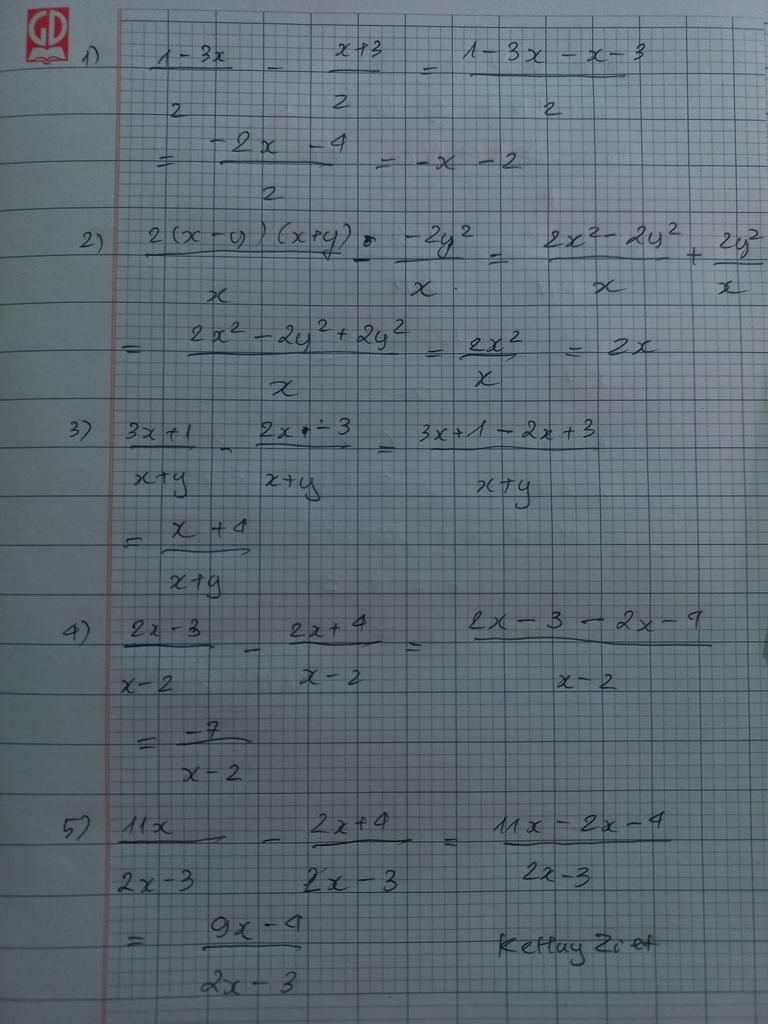 GD
1) (1-3x)/2 - (x+3)/2 = (1-3x-x-3)/2
= (-2x-4)/2 = -x-2
2) (2(x-y)(x+y))/x - (-2y²)/x = (2x²-2y²)/x + (2y²)/x
= (2x²-2y²+2y²)/x = (2x²)/x = 2x
3) (3x+1)/(x+y) - (2x-3)/(x+y) = (3x+1-2x+3)/(x+y)
= (x+4)/(x+y)
4) (2x-3)/(x-2) - (2x+4)/(x-2) = (2x-3-2x-4)/(x-2)
= (-7)/(x-2)
5) (11x)/(2x-3) - (2x+4)/(2x-3) = (11x-2x-4)/(2x-3)
= (9x-4)/(2x-3)